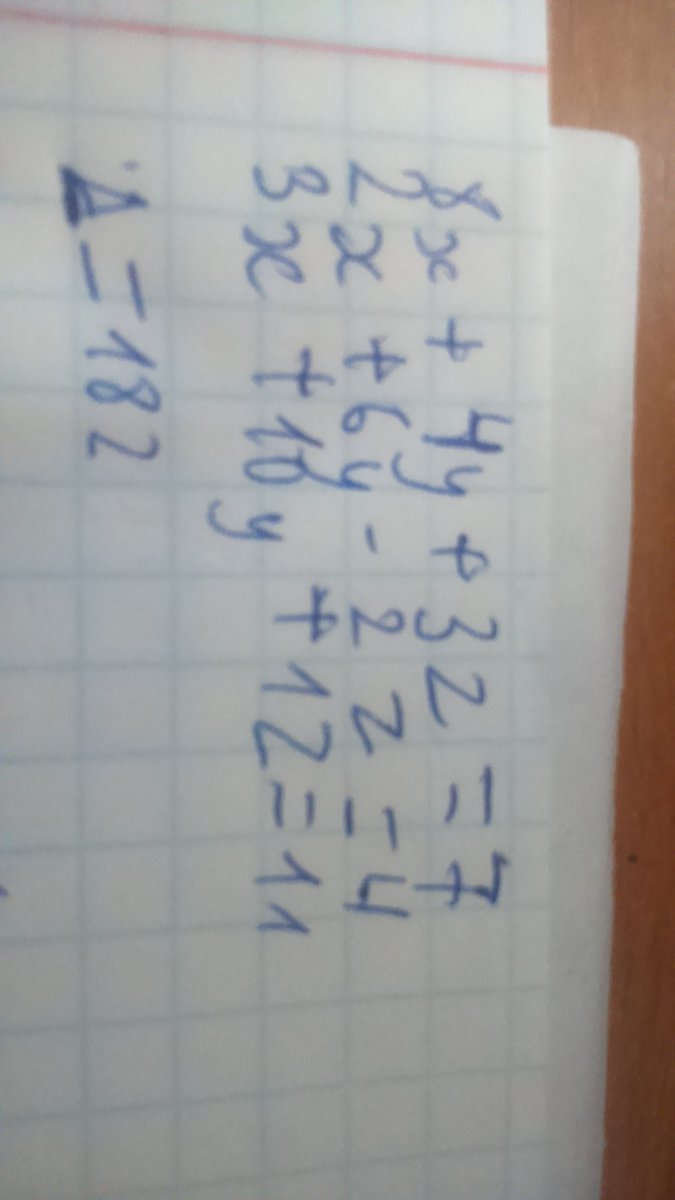 8x + 4y + 3z = 7
2x + 6y - 2z = 4
3x + 10y + 1z = 11
Δ = 182